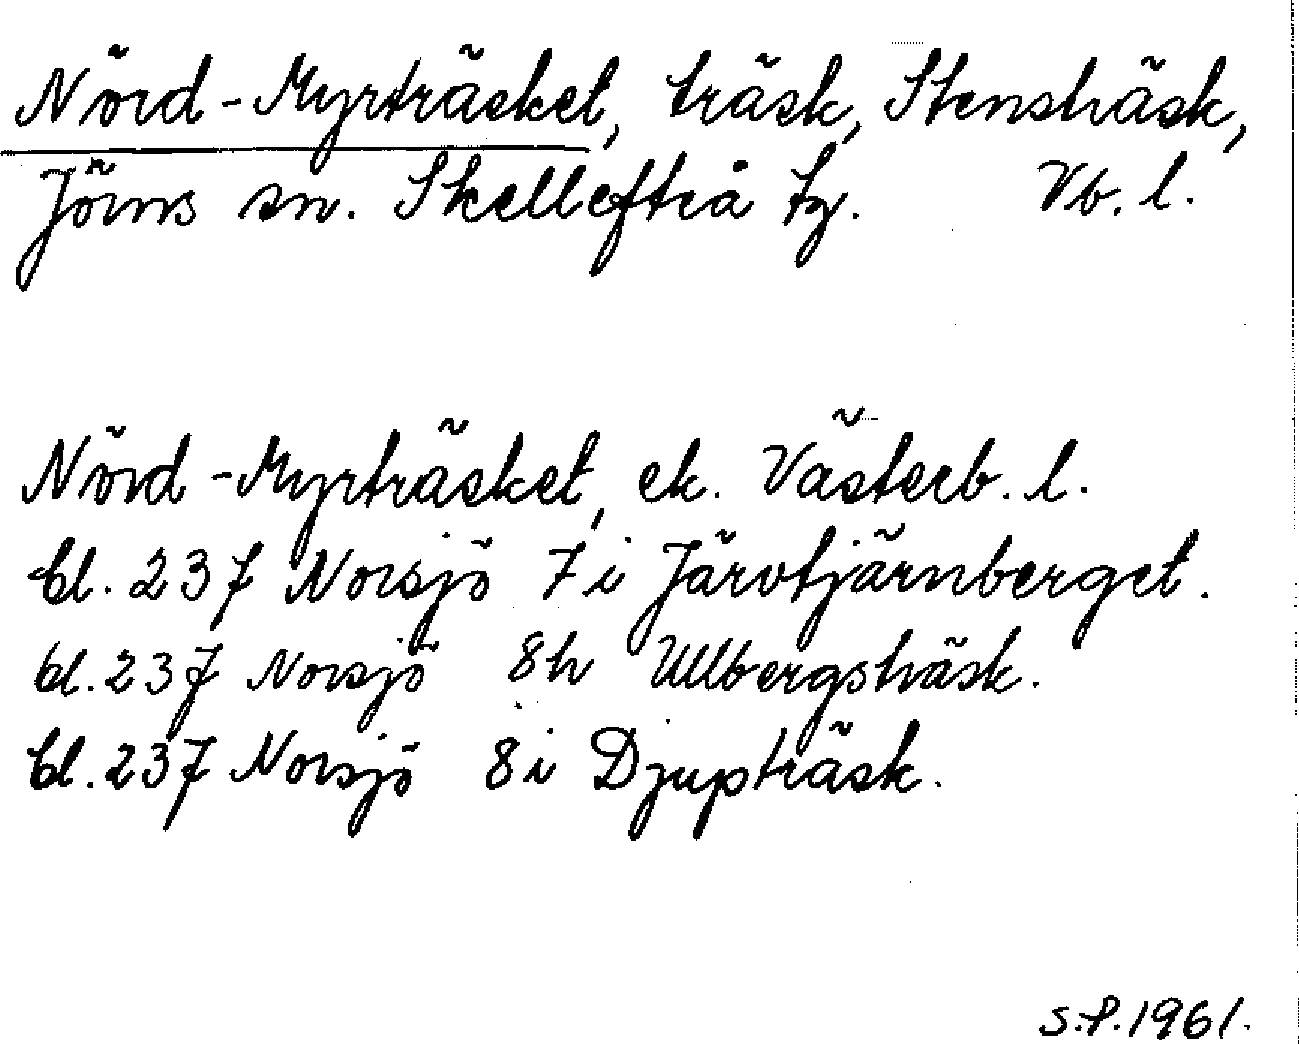 Nörd-Myrträsket, träsk, Stensträsk,
Jörns sn. Skellefteå tg. Vb. l.
Nörd-Myrträsket, ek. Västerb. l.
bl. 237 Norsjö 7i Järvtjärnberget.
bl. 237 Norsjö 8h Ullbergsträsk.
bl. 237 Norsjö 8i Djupträsk.
S.P. 1961.